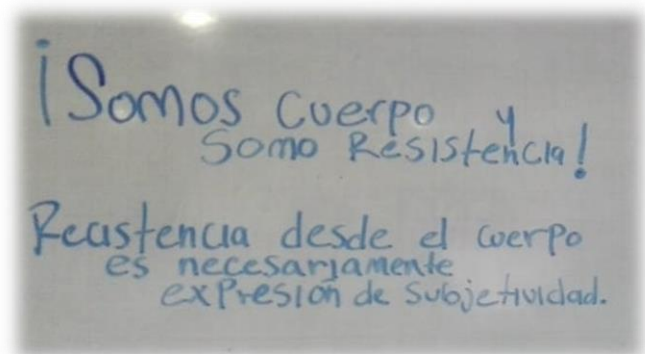 ¡Somos cuerpo y
Somo Resistencia!
Recistencia desde el cuerpo
es necesariamente
expresión de subjetividad.